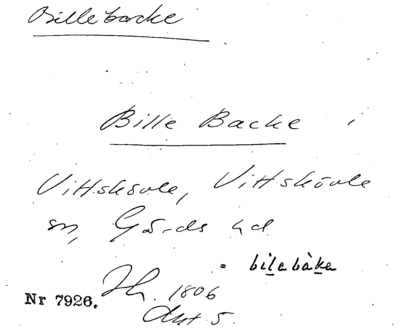 Billebacke
Bille Backe i
Vittskövle, Vittskövle
sn, Gärds hd
= bilebàka
Nr 7926. Th. 1806
Akt 5.